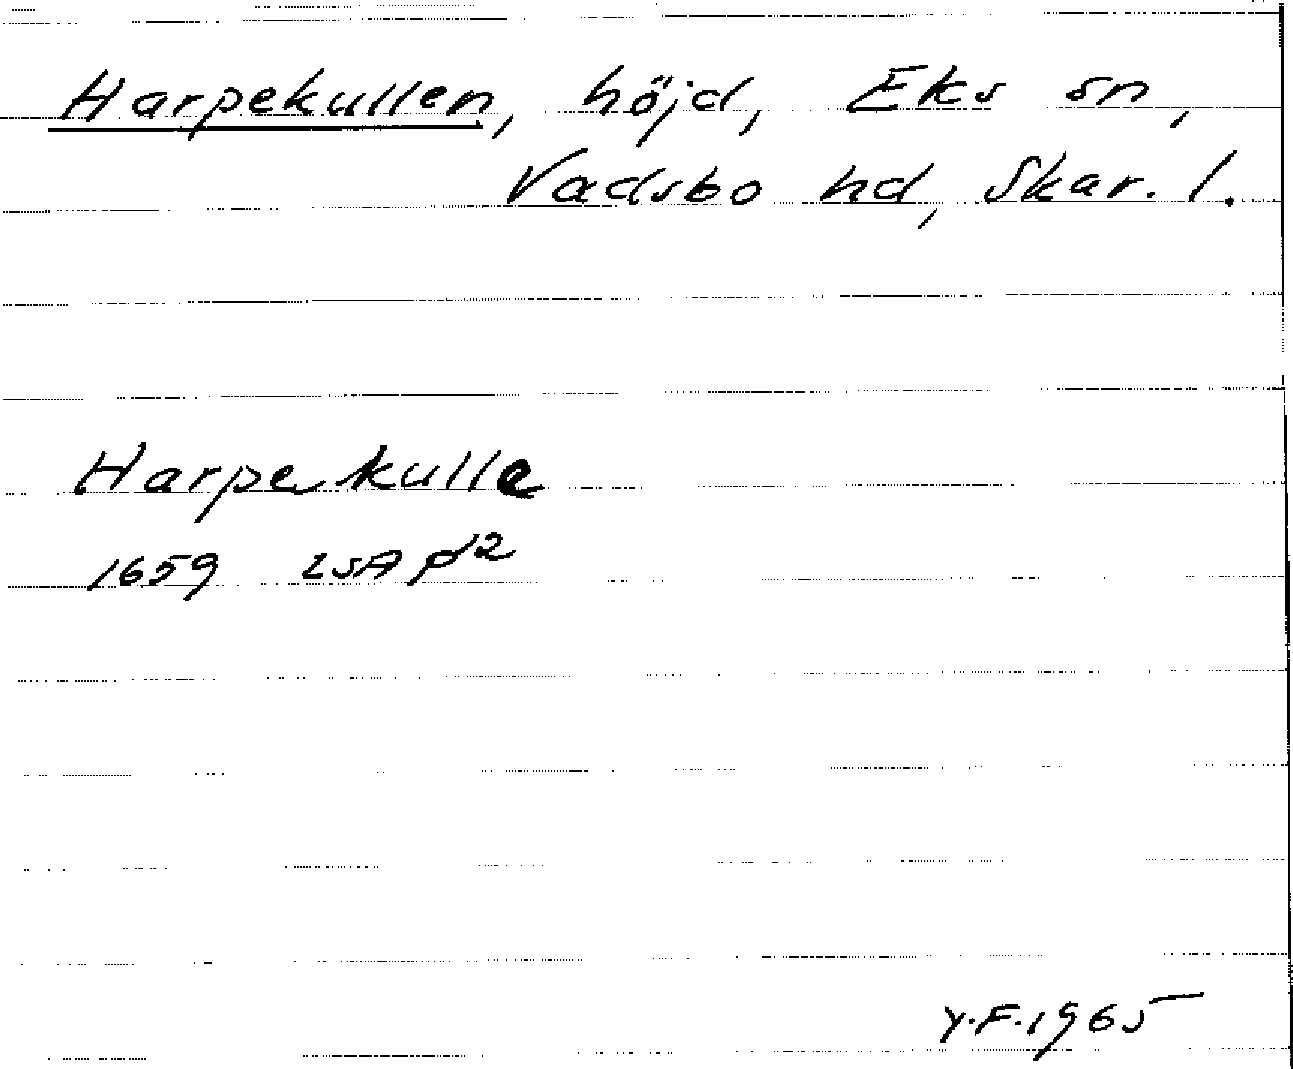 Harpekullen, höjd, Eks sn,
Vadsbo hd, Skar. l.
Harpe kulle
1659 LSA p 2
Y.F. 1965